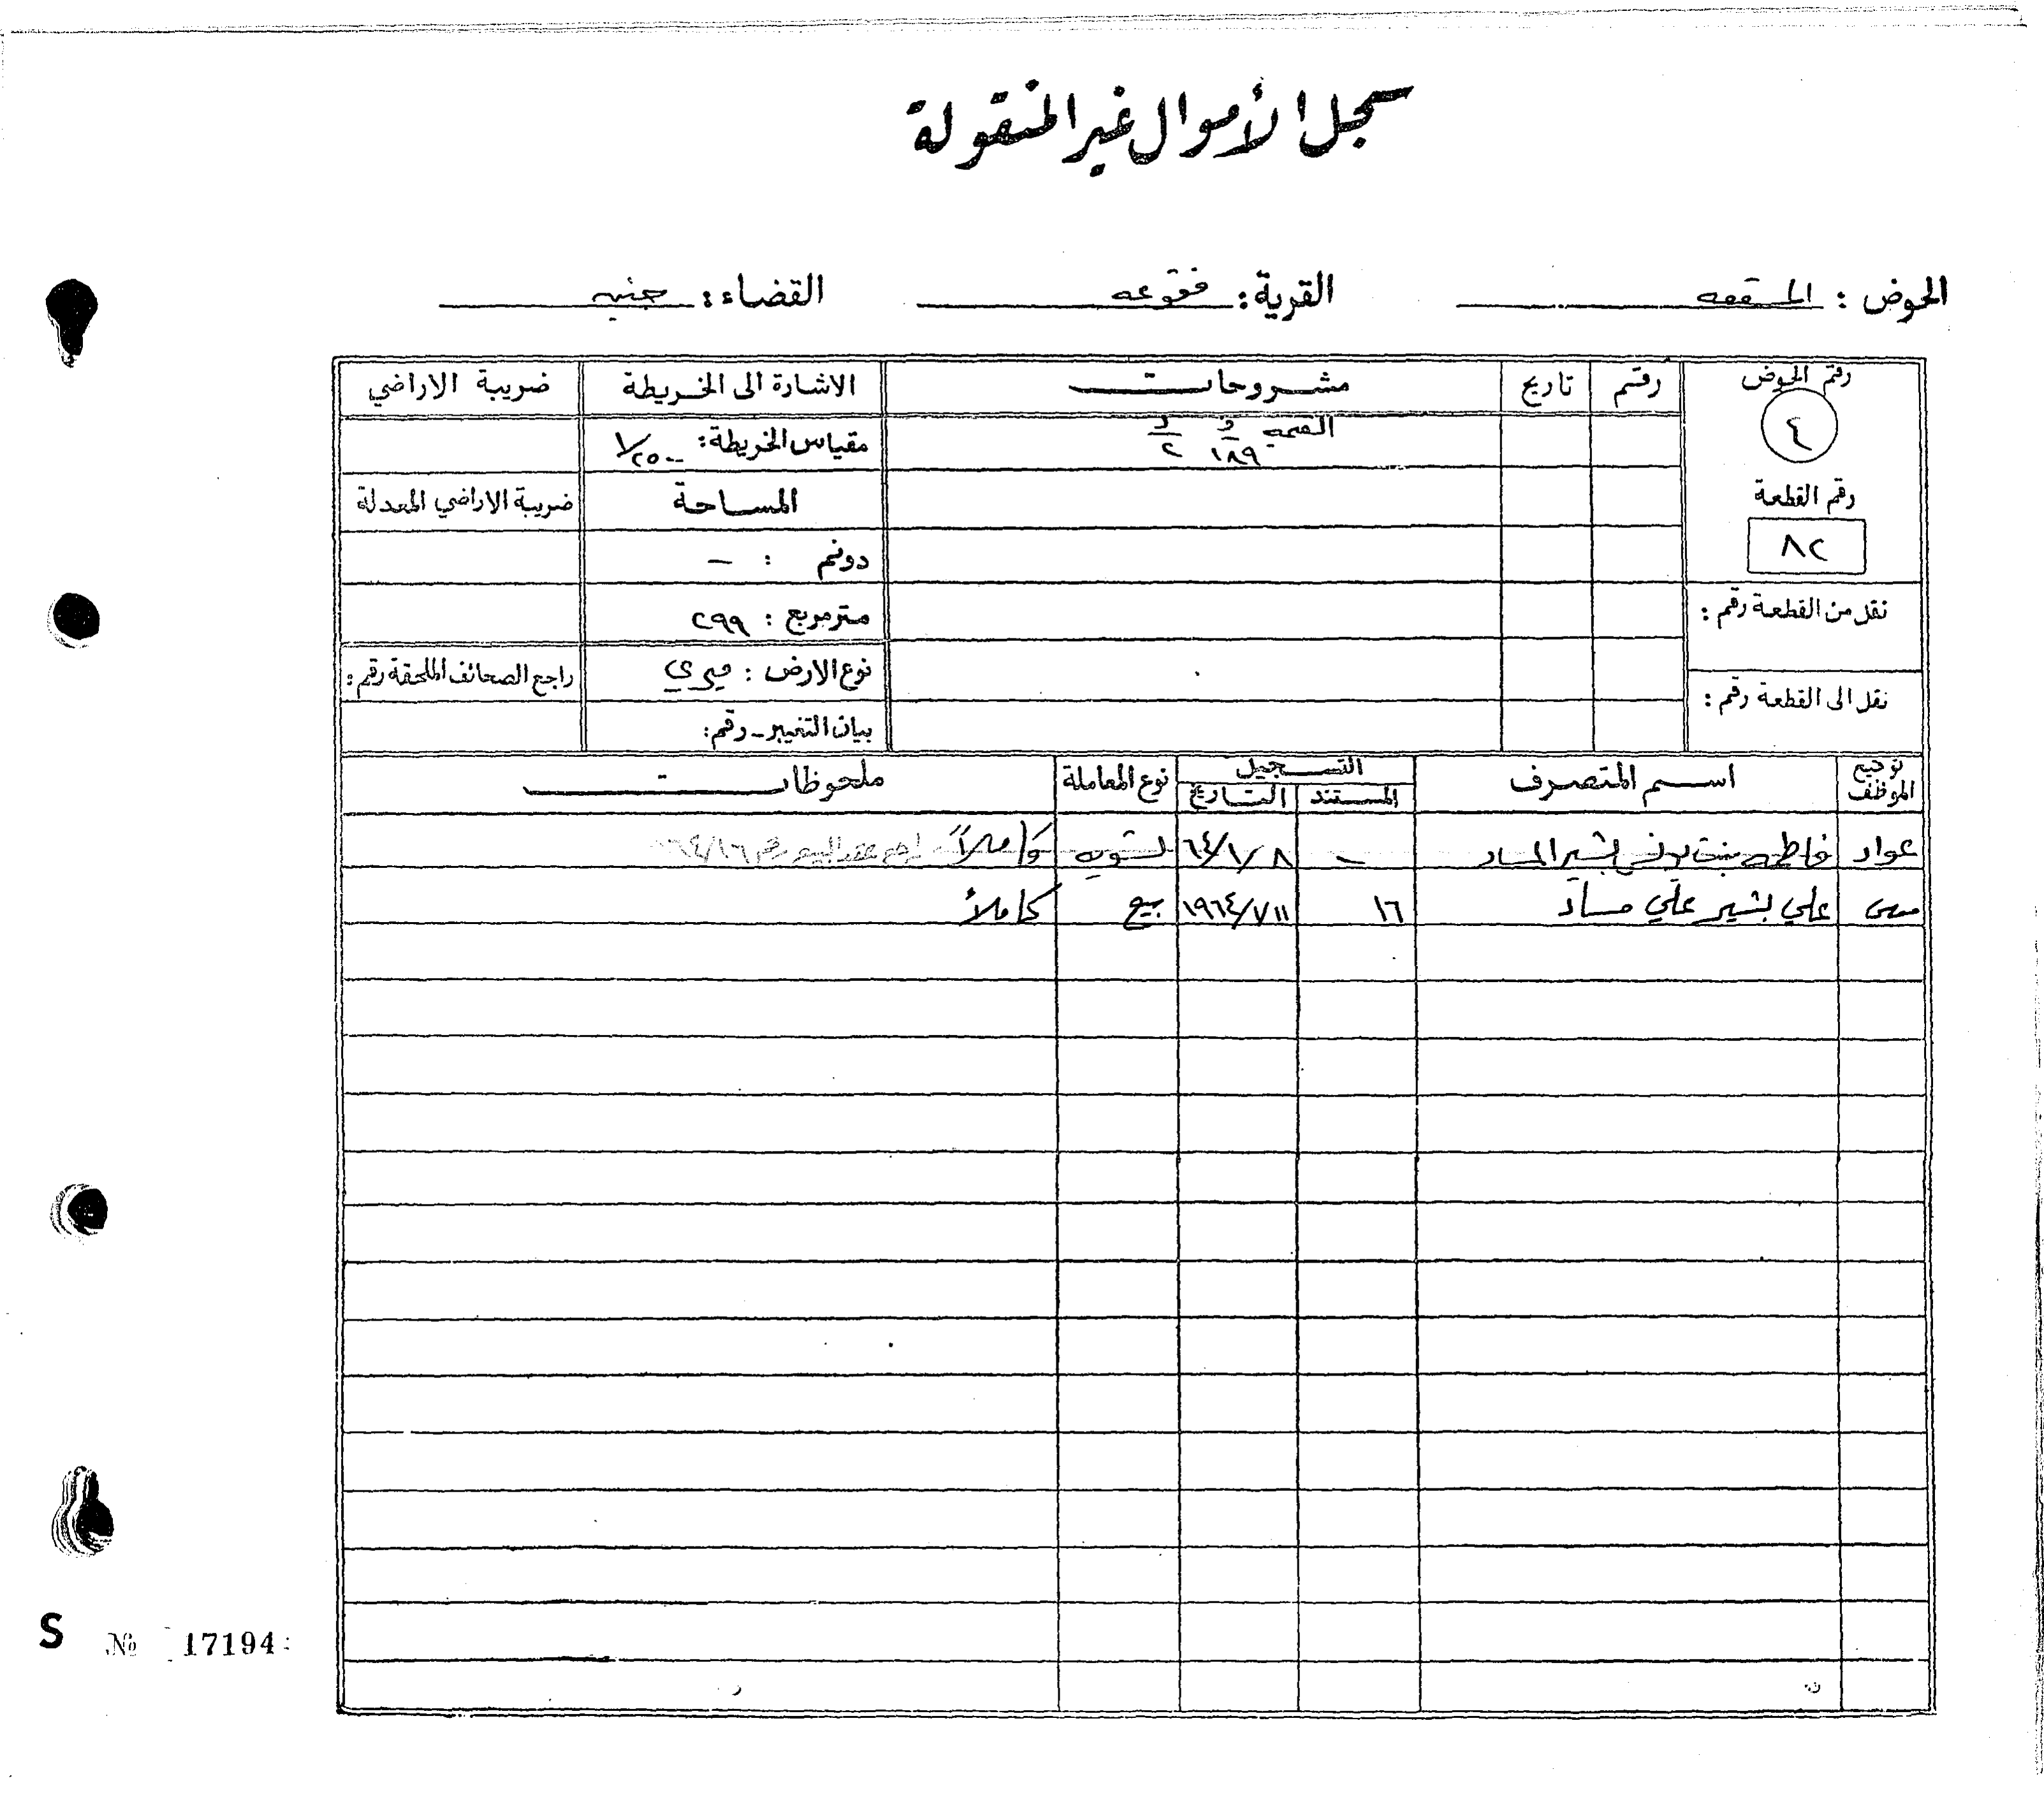 سجل الأموال غير المنقولة
الحوض : القرية : فقوعه القضاء : جنين
رقم الحوض رقم تاريخ مشروحات الاشارة الى الخريطة ضريبة الاراضي
٤ القيمه د ١٨٩ د ٢ مقياس الخريطة : ١/٢٥٠٠
رقم القطعة المساحة ضريبة الاراضي المعدلة
٨٢ دونم : –
نقل من القطعة رقم : متر مربع : ٢٩٩
نوع الارض : ميري راجع الصحائف الملحقة رقم :
نقل الى القطعة رقم : بيان التغيير – رقم :
توقيع الموظف اسم المتصرف التسجيل المستند التاريخ نوع المعاملة ملحوظات
عواد فاطمه بنت بشير المساد – ٦٤/١/٨ تسويه كاملاً راجع عقد البيع رقم ٦٤/١٦
علي بشير علي مساد ١٦ ١٩٦٤/٧/١١ بيع كاملاً
S № 17194